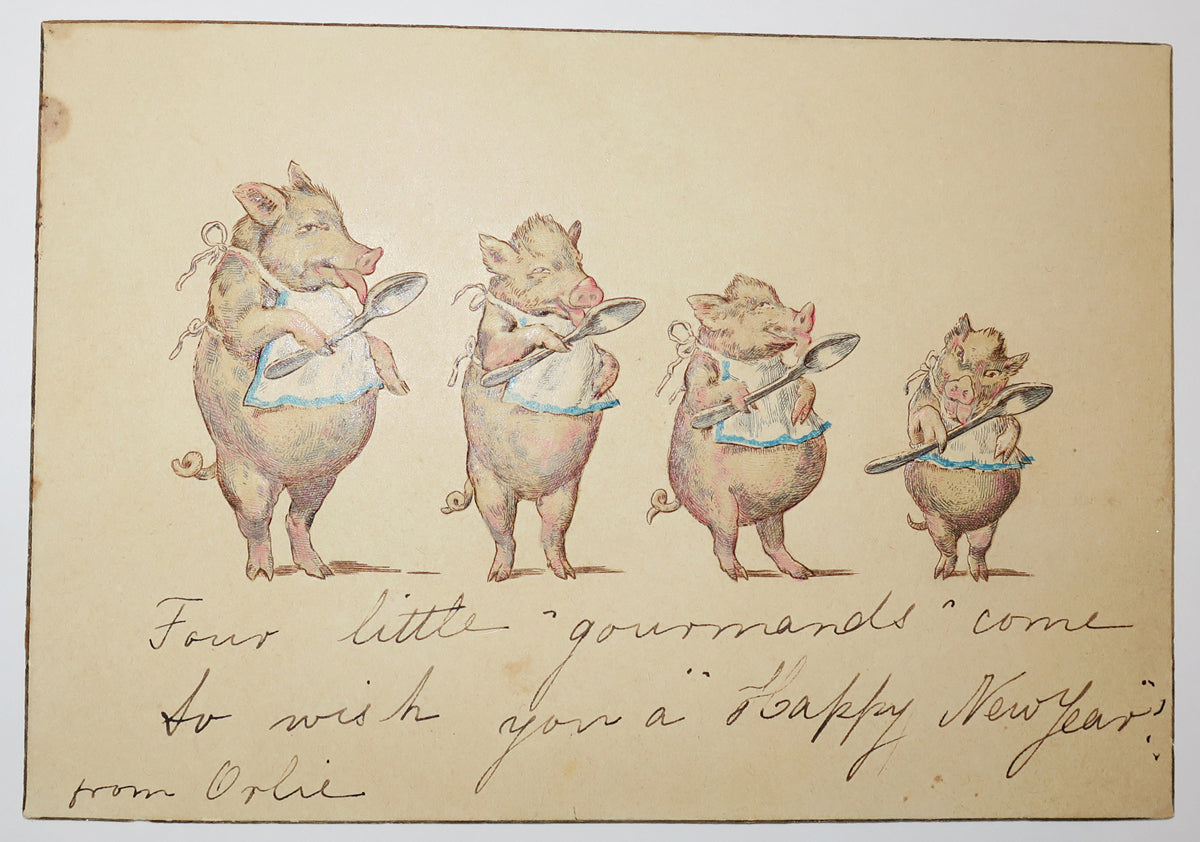 Four little "gourmands" come
to wish you a "Happy New Year".
from Orlie